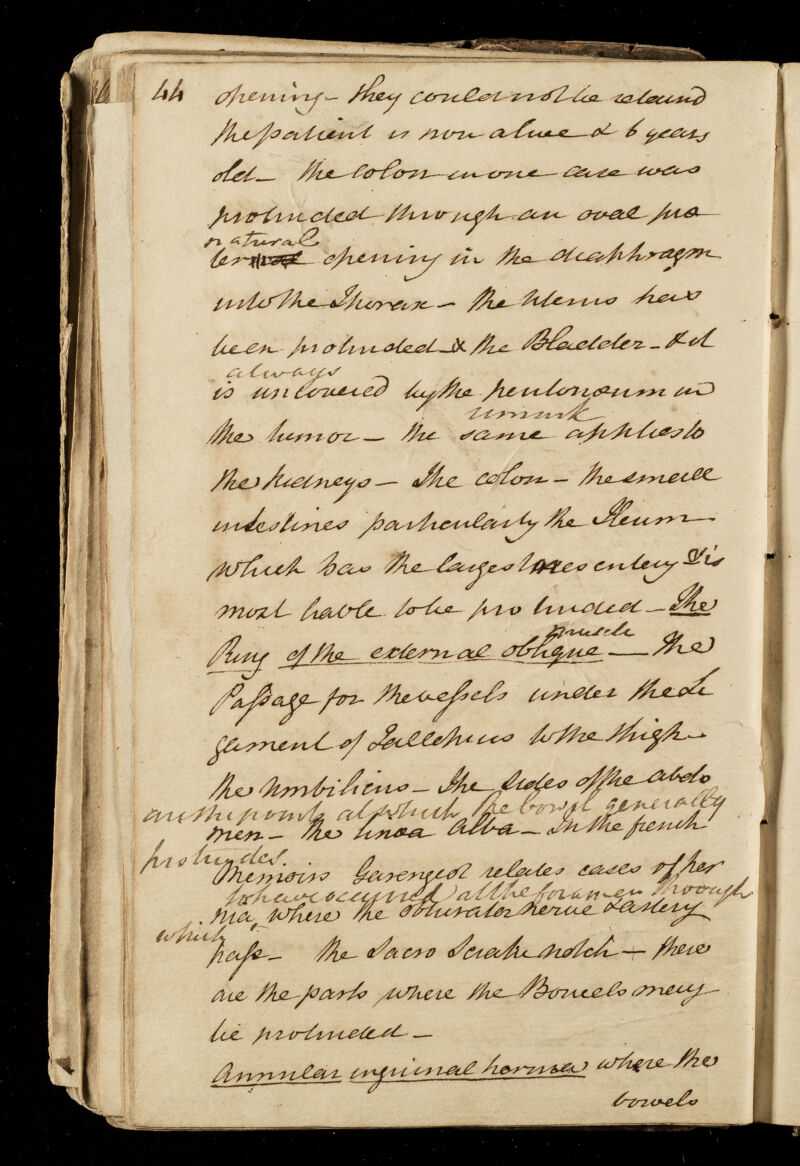 44
opening - they could not be retained
the patient is now alive & 6 years
old - the colon in one case was
protruded through an oval præ
natural
ter opening in the diaphragm
into the Thorax - the Uterus has
been protruded - & the Bladder - & it
always
is uncovered by the peritonæum in
the tumor - the same applies to
remark
the kidneys - The colon - the small
intestines particularly the Ileum
which has the largest mesentery & is
most liable to be protruded - The
muscle
Ring of the external oblique - the
Passage for the vessels under the Li
gament of Fallopius to the thigh -
the Umbilicus - The sides of the abdo
are the points at which the bowel generally
men - the linea Alba - In the french
protrudes.
Memoirs Garengeot relates cases of her
to have occurred at the foramen through
nia, where the obturator nerve & artery
which
pass - the Sacro Sciatic notch - these
are the parts where the Bowels may
be protruded -
Annular inguinal hernia where the
bowels